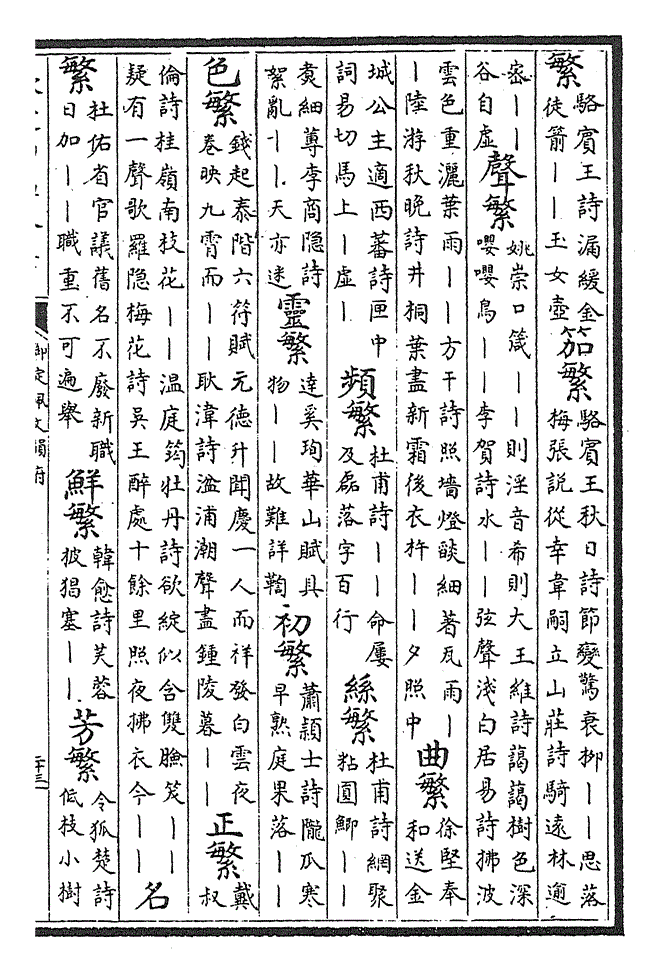 繁駱賓王詩漏緩金徒箭丨丨玉女壺笳繁駱賓王秋日詩節變驚衰柳丨丨思落梅張說從幸韋嗣立山莊詩騎遠林逾
密丨丨谷自虛聲繁姚崇口箴丨丨則淫音希則大王維詩藹藹樹色深嚶嚶鳥丨丨李賀詩水丨丨弦聲淺白居易詩拂波
雲色重灑葉雨丨丨方干詩照墻燈燄細著瓦雨丨丨陸游秋晚詩井桐葉盡新霜後衣杵丨丨夕照中曲繁徐堅奉和送金
城公主適西蕃詩匣中詞易切馬上丨虛丨頻繁杜甫詩丨丨命屢及磊落字百行絲繁杜甫詩網聚粘圓鯽丨丨
賁細蓴李商隐詩絮亂丨丨天亦迷靈繁達奚珣華山賦具物丨丨故難詳鞫初繁蕭頴士詩隴瓜寒早熟庭果落丨丨
色繁錢起泰階六符賦元德升聞慶一人而祥發白雲夜卷映九霄而丨丨耿湋詩湓浦潮聲盡鍾陵暮丨丨正繁戴叔
倫詩桂嶺南枝花丨丨温庭筠牡丹詩欲綻似含雙臉笑丨丨疑有一聲歌羅隐梅花詩吳王醉處十餘里照夜拂衣今丨丨名
繁杜佑省官議舊名不廢新職日加丨丨職重不可遍舉鮮繁韓愈詩芙蓉披猖塞丨丨芳繁令狐楚詩低枝小樹
御定佩文韻府